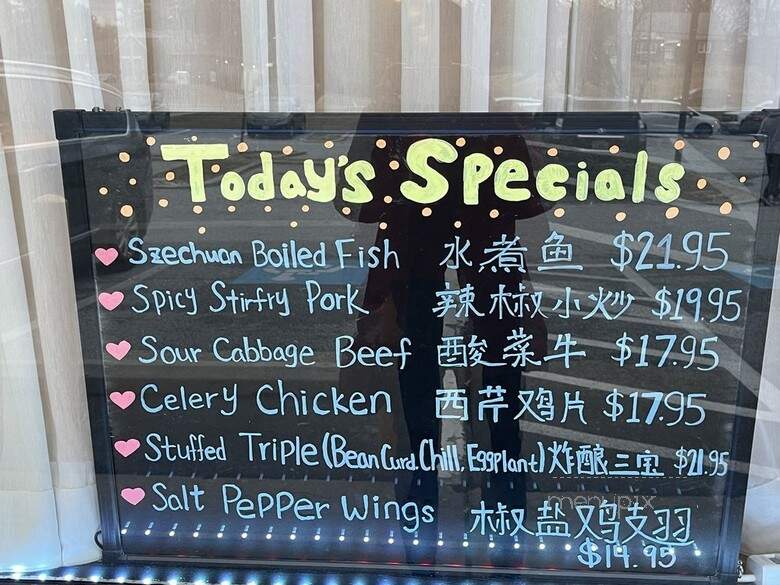 Today's Specials
Szechuan Boiled Fish 水煮鱼 $21.95
Spicy Stirfry Pork 辣椒小炒 $19.95
Sour Cabbage Beef 酸菜牛 $17.95
Celery Chicken 西芹鸡片 $17.95
Stuffed Triple (Bean Curd, Chill, Eggplant) 炸酿三宝 $21.95
Salt Pepper Wings 椒盐鸡翅
$14.95
menupix